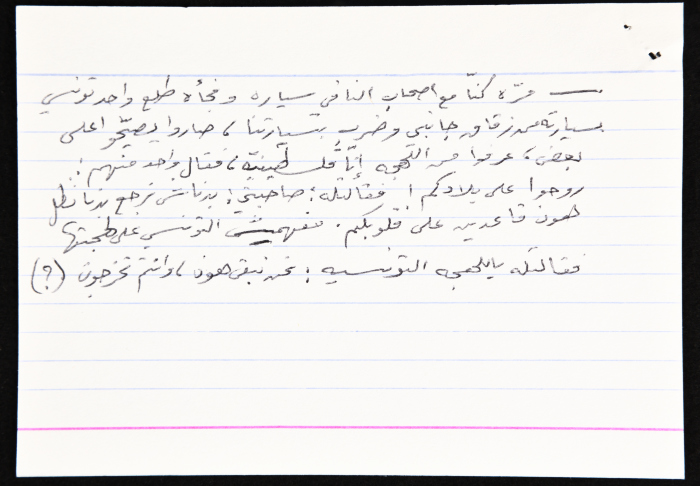 ــ مرّة كنّا مع اصحاب النا في سياره وفجأه طلع واحد تونسي
بسيارته من زقاق جانبي وضرب بسيارتنا، صاروا يصيّحوا على
بعض، عرفوا من اللهجه إنّا فلسطينيّه، فقال واحد منهم:
روحوا على بلادكم! فقالتله صاحبتي: بدناش نرجع بدنا نظل
هون قاعدين على قلوبكم. مفهمش التونسي على لهجتها
فقالتله باللهجه التونسيه: نحن نبقى هون، وانتم تخرجون (؟)